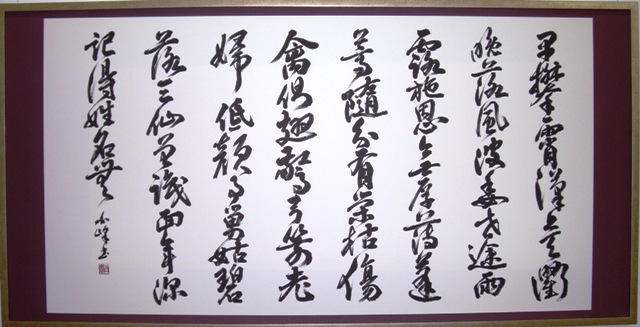 早攀霄漢上天衢
晚落風波委世途雨
露施恩無厚薄蓬
蒿隨分有榮枯傷
禽側翅驚弓箭老
婦低顏事舅姑碧
落三仙曾識面年深
記得姓名無 峰書